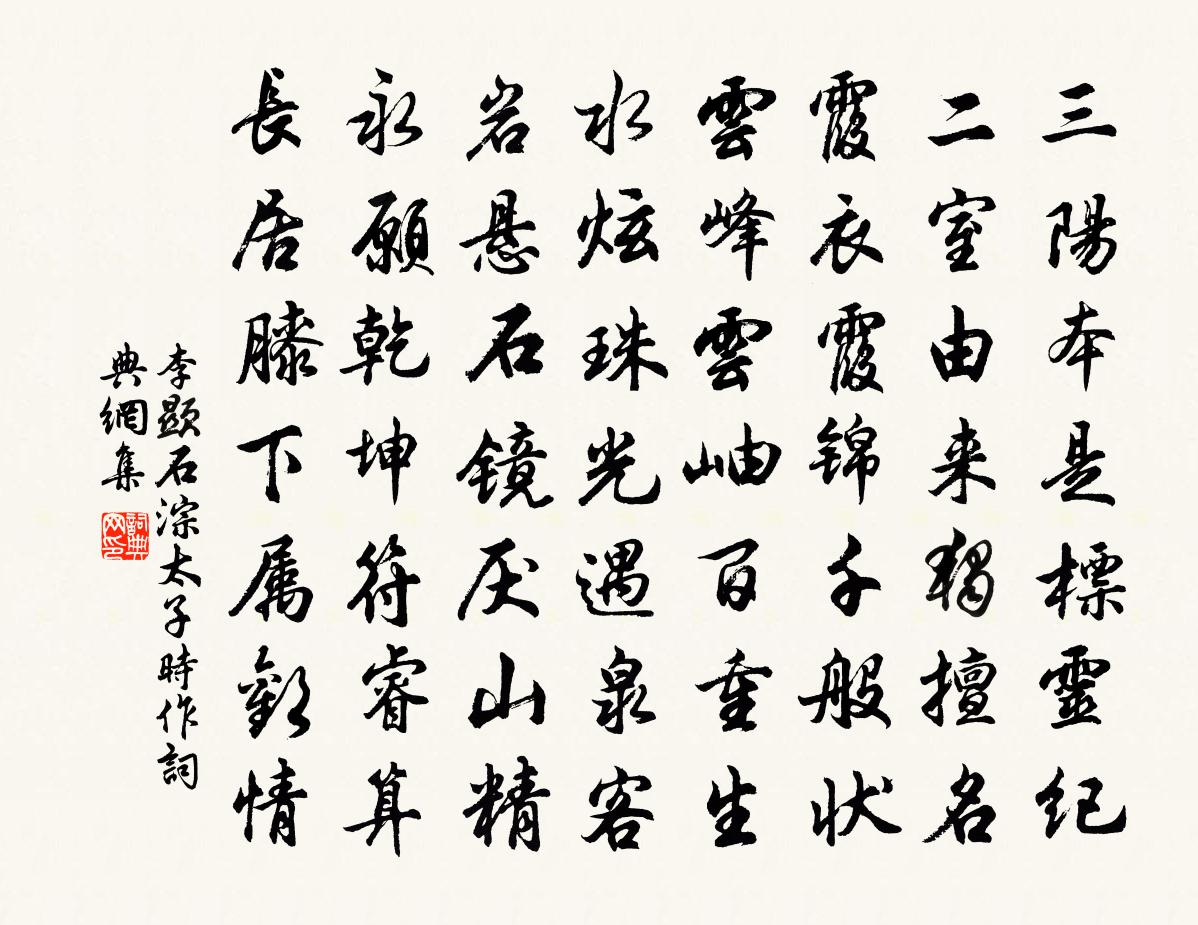 三陽本是標靈纪
二室由来獨擅名
霞衣霞锦千般状
雲峰雲岫百重生
水炫珠光遇泉客
岩悬石镜厌山精
永願乾坤符睿算
長居膝下属歡情
李顯石淙太子時作詞
典網集
詞典
网印